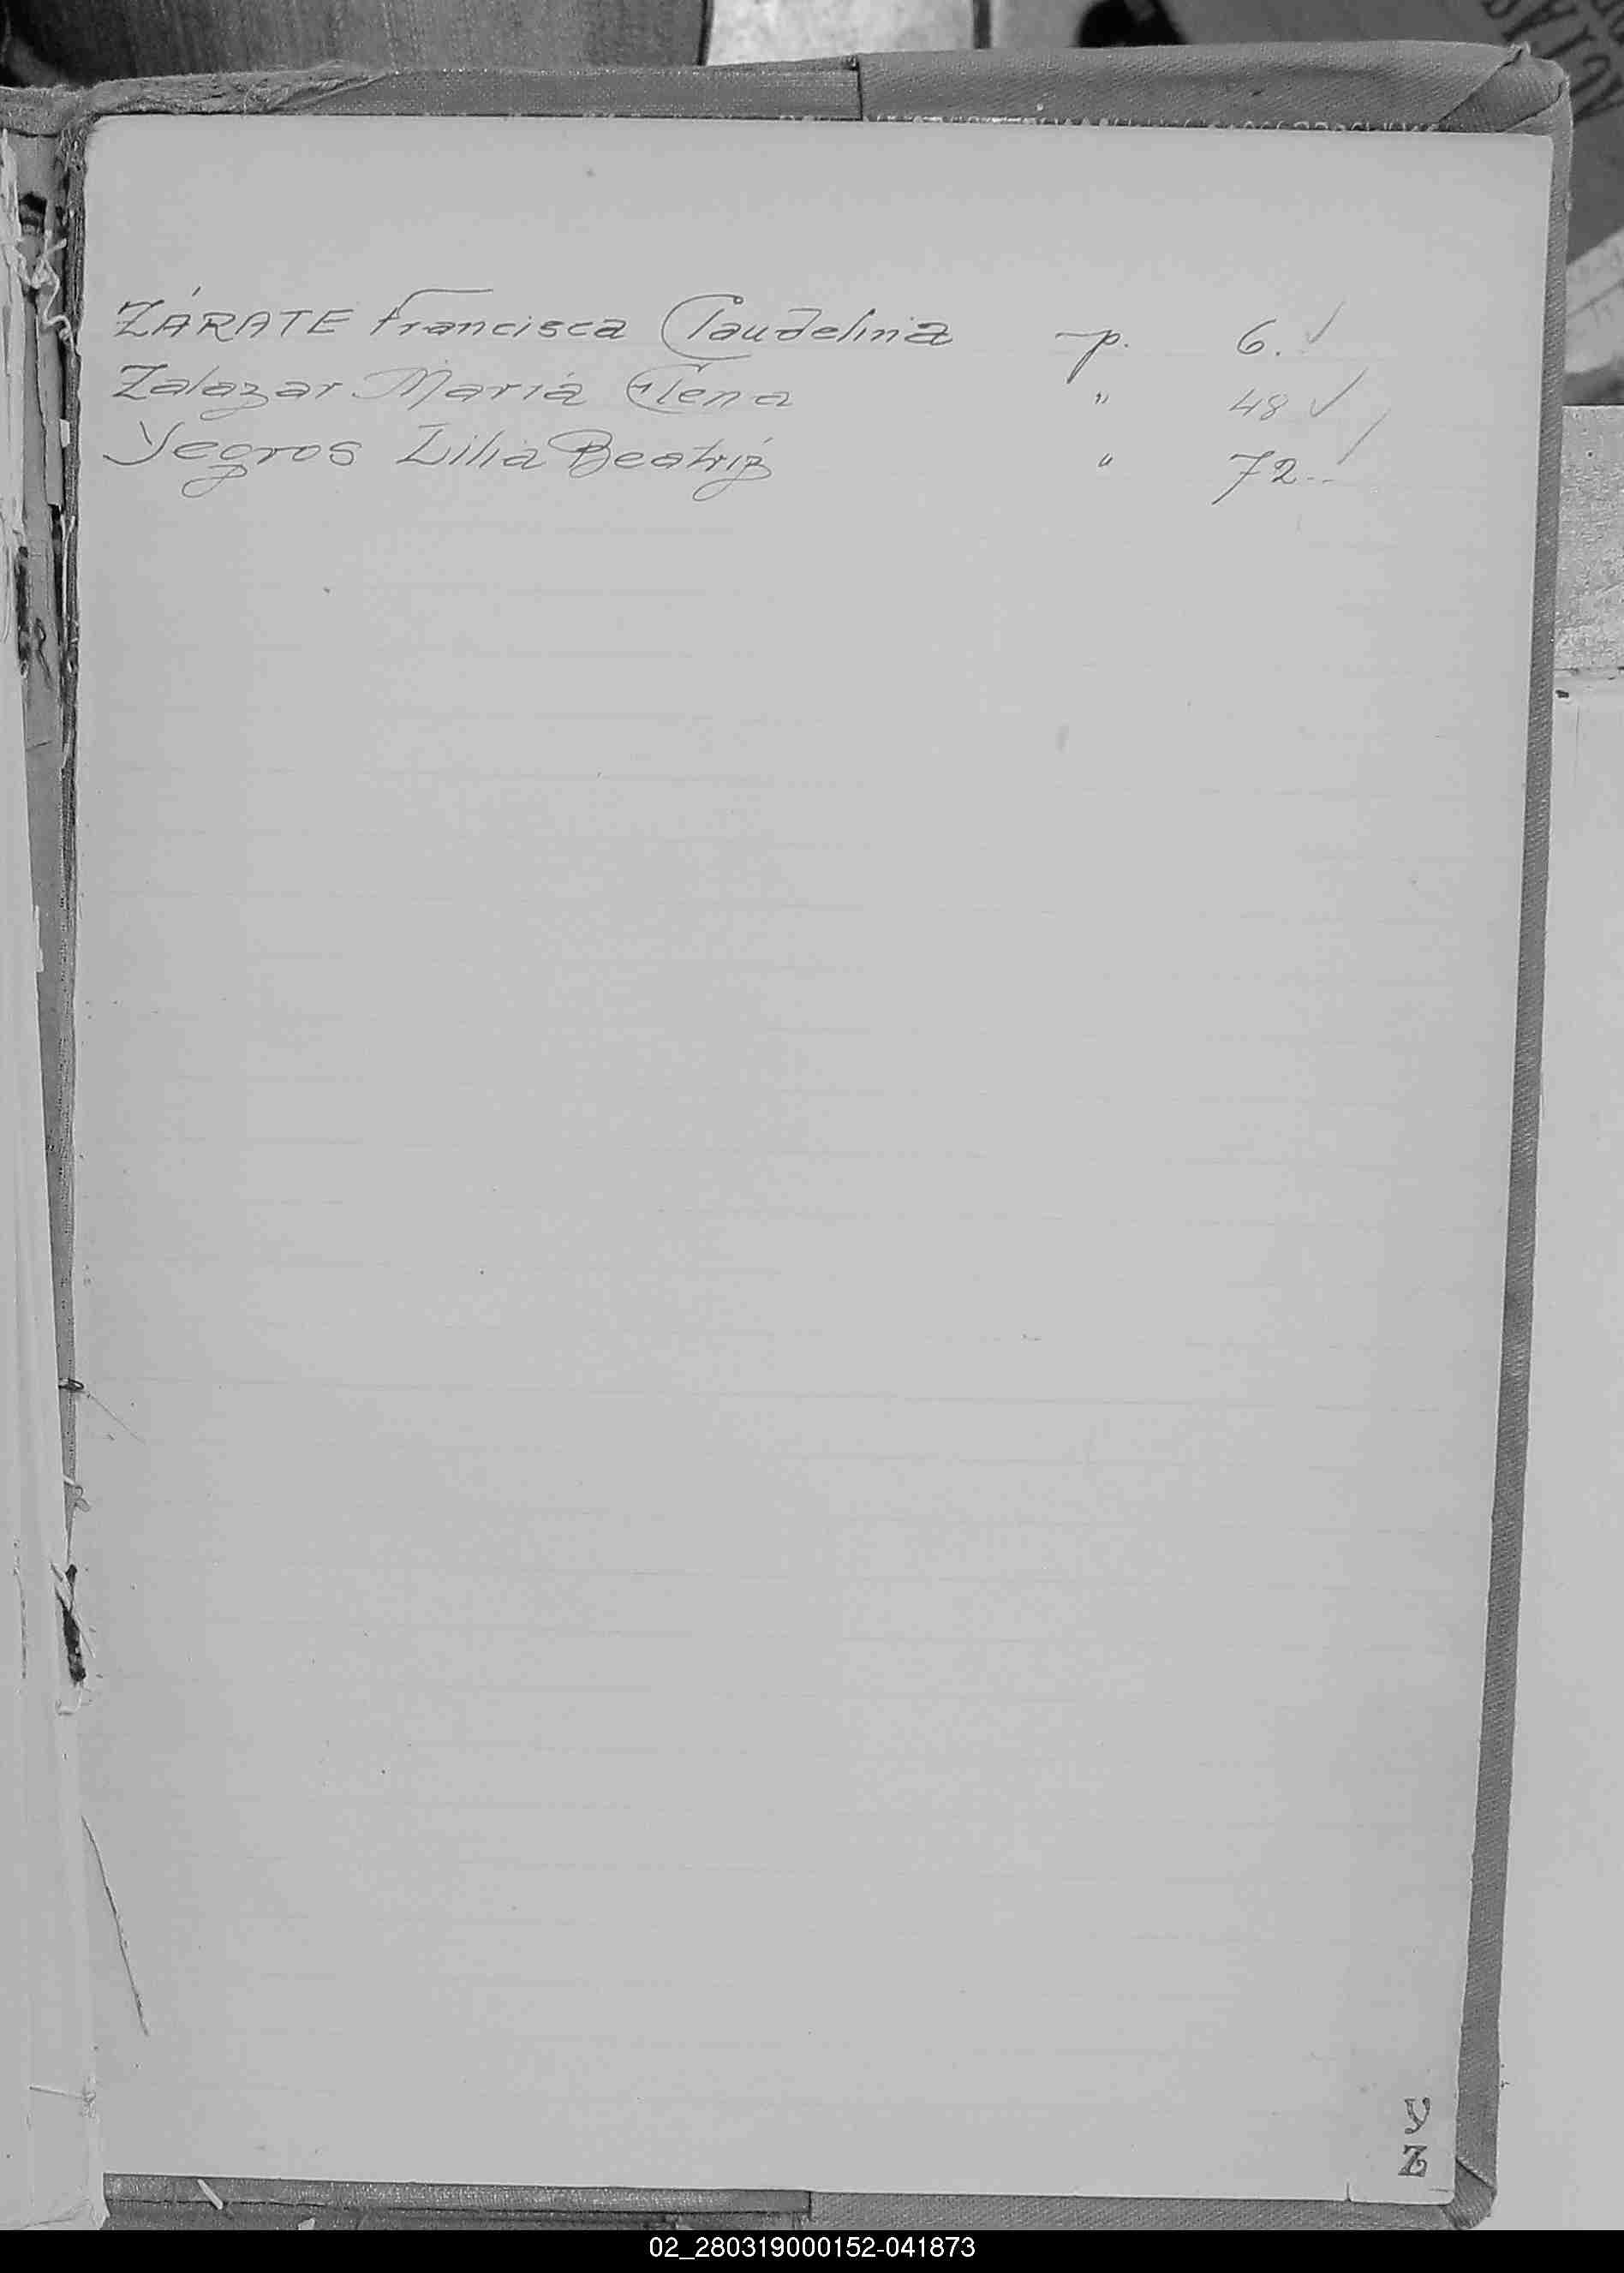 ZÁRATE Francisca Claudelina p. 6. ✓
Zalazar María Elena " 48 ✓
Yegros Lilia Beatriz " 72.. ✓
Y
Z
02_280319000152-041873